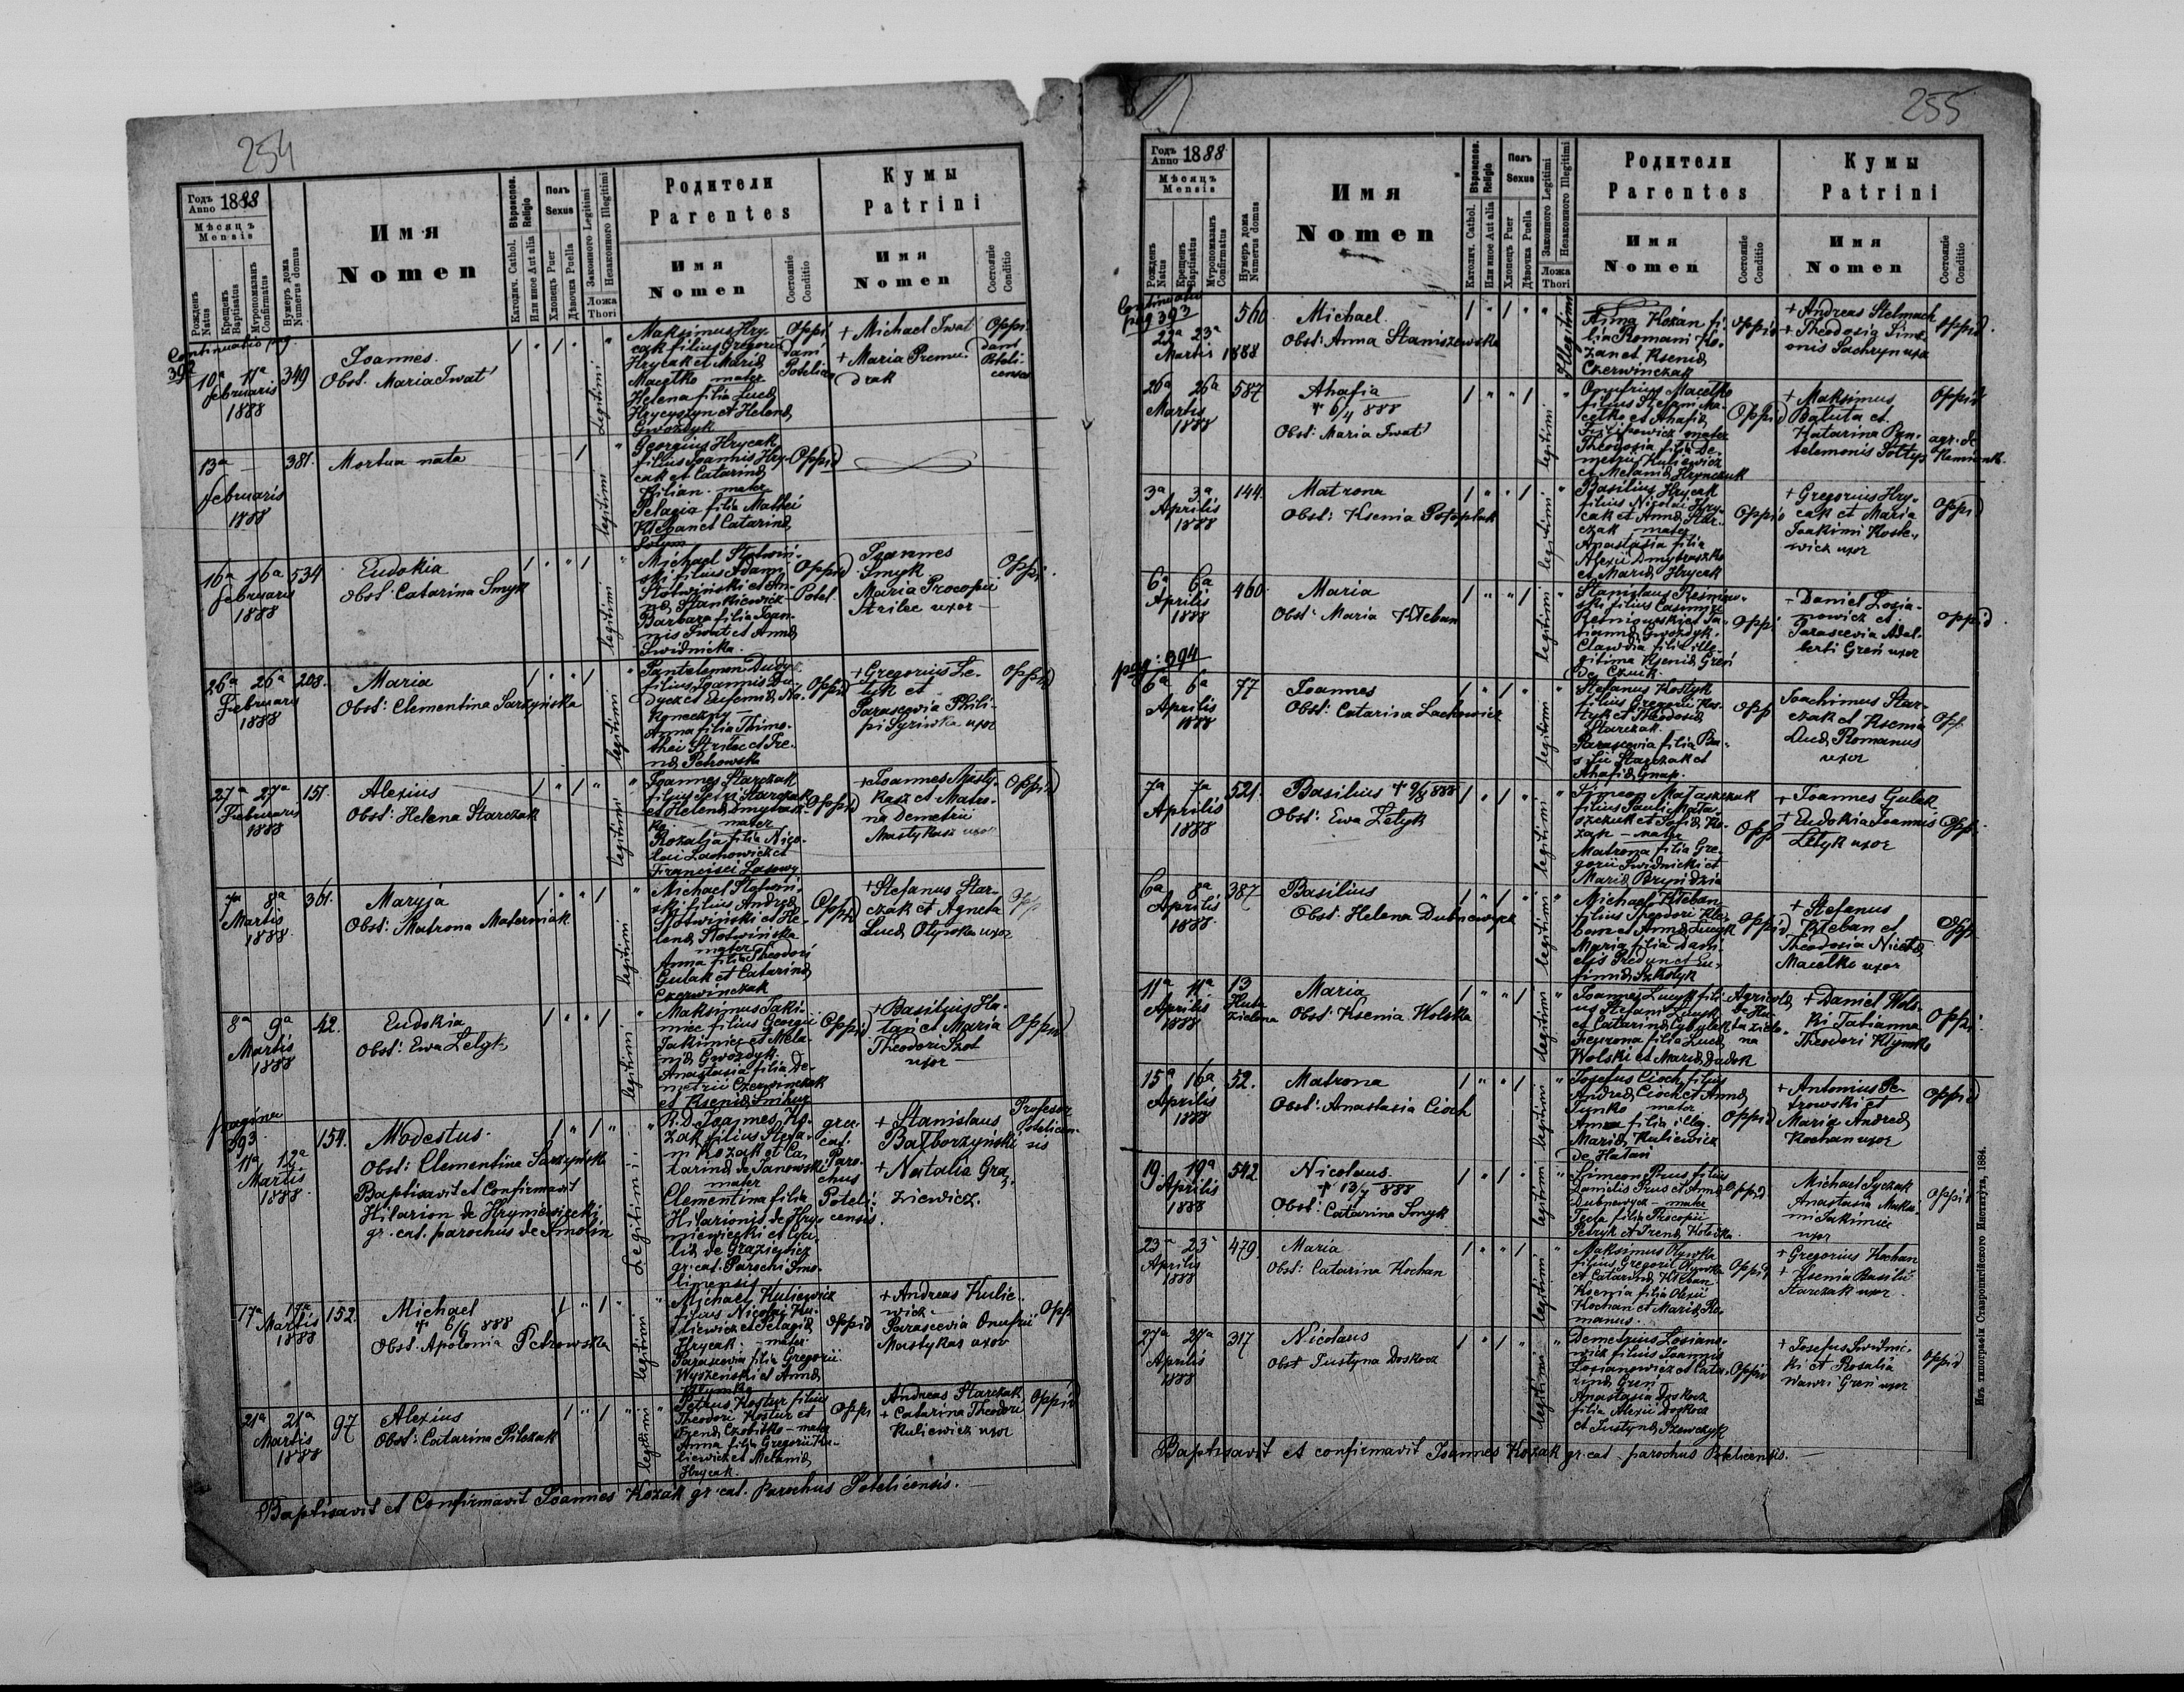 254
Годъ Anno 1888
Мѣсяцъ Mensis
Рожденъ Natus
Крещенъ Baptisatus
Муропомазанъ Confirmatus
Нумеръ дома Numerus domus
Имя Nomen
Вѣроиспов. Religio
Католич. Cathol.
Или иное Aut alia
Полъ Sexus
Хлопецъ Puer
Дѣвочка Puella
Законного Legitimi
Незаконного Illegitimi
Ложа Thori
Родители Parentes
Имя Nomen
Состояніе Conditio
Кумы Patrini
Имя Nomen
Состояніе Conditio
Continuatio pag. 392
10a 11a februaris 1888
349
Joannes
Obst. Maria Iwat
legitimi
Maksimus Hry-
cak filius Gregorii
Hrycak et Maria
Macełko mater
Helena filia Lucæ
Hrycyszyn et Helenæ
Gwozdyk
Oppidani Potelicz
+ Michael Iwat
+ Maria Premu-
drak
Oppidani Potelicenses
13a februaris 1888
381.
Mortua nata
legitimi
Georgius Hrycak
filius Joannis Hry-
cak et Catarinæ
Kilian mater
Pelagia filia Mathei
Kłeban et Catarinæ
Oppid
16a 16a februaris 1888
534
Eudokia
Obst. Catarina Smyk
legitimi
Michael Słotwiń-
ski filius Adami
Słotwiński et An-
næ Stankiewicz
Barbara filia Joan-
nis Iwat et Annæ
Swidnicka
Oppid Potel
Joannes
Smyk
Maria Procopii
Strilec uxor
Oppi.
26a 26a Februaris 1888
208.
Maria
Obst: Clementina Sarzyńska
legitimi
Pantelemon Dudycz
filius Joannis Du-
dycz et Eufemiæ Na-
koneczny
Anna filia Thimo-
thei Striłec et Ire-
næ Petrowska
Oppid
+ Gregorius Le-
tyk et
Parascevia Phili-
pi Syriwka uxor
Oppid
27a 27a Februaris 1888
151.
Alexius
Obst: Helena Starczak
legitimi
Joannes Starczak
filius Petri Starczak
et Helenæ Dmytrasz-
ko mater
Rozalia filia Nico-
lai Lachowicz et
Francisci
Oppid
+ Joannes Misty-
kasz et Matro-
na Demetrii
Mastykasz uxor
Oppid
7a 8a Martis 1888
361.
Maryja
Obst: Matrona Materniak
legitimi
Michael Słotwiń-
ski filius Andreæ
Słotwiński et He-
lenæ Słotwińska
mater
Anna filia Theodori
Gulak et Catarinæ
Czerwinczak
Oppid
+ Stefanus Star-
czak et Agneta
Lucæ Otyska uxor
Opp
8a 9a Martis 1888
42.
Eudokia
Obst: Ewa Letyk
legitimi
Maksimus Jaki-
miec filius Georgii
Jakimiec et Mela-
niæ Gwozdyk
Anastasia filia De-
metrii Czerwinczak
et Kseniæ
Oppid
+ Basilius Ha-
łan et Maria
Theodori Szot
uxor
Oppid
pagina 393
11a 12a Martis 1888
154.
Modestus.
Obst: Clementina Sarzyńska
Baptisavit et Confirmavit
Hilarion de Hryniewiecki
gr. cat. parochus de Smolin
Legitimi
R. D. Joannes Ko-
zak filius Stefa-
ni Kozak et Ca-
tarinæ de Janowski
mater
Clementina filia
Hilarionis de Hry-
niewiecki et Ceci-
liæ de Graziewicz
gr. cat. Parochi Smo-
linensis
græ. cat. Parochus Potelicensis.
+ Stanislaus
Balborzyński
+ Natalia Gra-
ziewicz.
Profesor Potelicensis
17a 17a Martis 1888
152.
Michael
+ 6/9 888
Obst. Apolonia Petrowska
legitimi
Michael Kuliewicz
filius Nicolai Ku-
liewicz et Pelagiæ
Hrycak mater
Parascevia filia Gregorii
Wyszeński et Annæ
Klymko
Oppid
+ Andreas Kulie-
wicz
Parascevia Onufrii
Mastykasz uxor
Opp
21a 21a Martis 1888
97
Alexius
Obst: Catarina Pilczak
legitimi
Petrus Kostur filius
Theodori Kostur et
Irenæ Czobitko - mater
Anna filia Gregorii Ku-
liewicz et Melaniæ
Hrycak.
Oppi
Andreas Starczak
+ Catarina Theodori
Kuliewicz uxor
Oppid
+ Baptisavit et Confirmavit Joannes Kozak gr. cat. parochus Potelicensis.
255
Годъ Anno 1888
Мѣсяцъ Mensis
Рожденъ Natus
Крещенъ Baptisatus
Муропомазанъ Confirmatus
Нумеръ дома Numerus domus
Имя Nomen
Вѣроиспов. Religio
Католич. Cathol.
Или иное Aut alia
Полъ Sexus
Хлопецъ Puer
Дѣвочка Puella
Законного Legitimi
Незаконного Illegitimi
Ложа Thori
Родители Parentes
Имя Nomen
Состояніе Conditio
Кумы Patrini
Имя Nomen
Состояніе Conditio
Continuatio pag 393
23a 23a Martis 1888
560
Michael.
Obst: Anna Staniszewska
Illegitimi
Anna Kozan fi-
lia Romani Ko-
zan et Kseniæ
Czerwinczak
Oppid
+ Andreas Stelmach
+ Theodosia Sime-
onis Sachryn uxor
Oppid.
26a 26a Martis 1888
587
Ahafia
+ 6/4 888
Obst: Maria Iwat
legitimi
Onufrius Macełko
filius Stefani Ma-
cełko et Ahafiæ
Filipowicz mater
Theodosia filia De-
metrii Kuliewicz
et Melaniæ Hrynczuk
Oppid
+ Maksimus
Bałuta et
Katarina Pan-
telemonis Sołtys
Oppid
agr. de Kamionk.
3a 3a Aprilis 1888
144.
Matrona
Obst: Ksenia Potoplak
legitimi
Basilius Hrycak
filius Nicolai Hry-
cak et Annæ Star-
czak mater
Anastasia filia
Alexii Dmytraszko
et Mariæ Hrycak
Oppid
+ Gregorius Hry-
cak et Maria
Joakimi Koste-
wicz uxor
Oppid
6a 6a Aprilis 1888
460
Maria
Obst: Maria Kłeban
legitimi
Stanislaus Resniow-
ski filius Casimiri
Resniowski et Ta-
tiannæ Gwozdyk.
Clawdia filia ille-
gitima Kseniæ Greń
De Czuik
Oppi
+ Daniel Losia-
nowicz et
Parascevia Adal-
berti Greń uxor
Oppid
pag: 394
6a 6a Aprilis 1888
77
Joannes
Obst: Catarina Lachowicz
legitimi
Stefanus Kostyk
filius Gregorii Kos-
tyk et Theodosiæ
Starczak.
Parascevia filia Ba-
silii Starczak et
Ahafiæ Gnap.
Opp
Joachimus Star-
czak et Ksenia
Lucæ Romanus
uxor
Opp.
7a 7a Aprilis 1888
521.
Basilius + 9/8 888
Obst: Ewa Letyk
legitimi
Simeon Mataszczuk
filius Pauli Mata-
szczuk et Sofiæ Ko-
zak - mater
Matrona filia Gre-
gorii Swidnicki et
Mariæ Bryndzia
Opp
+ Joannes Gulak
+ Eudokia Joannis
Letyk uxor
Opp.
6a 8a Aprilis 1888
387
Basilius
Obst: Helena Dubnewycz
legitimi
Michael Kłeban
filius Theodori Kłe-
ban et Annæ Lucyk
Maria filia Dani-
elis Predun et Eu-
fimiæ Szkolyk
Oppid
+ Stefanus
Kłeban et
Theodosia Nicolai
Macełko uxor
Opp
11a 11a Aprilis 1888
13 Huta zielona
Maria
Obst: Ksenia Wolska
legitimi
Joannes Lucyk fili-
us Stefani Lucyk
et Catarinæ Cybylak
Fewrona filia Lucæ
Wolski et Mariæ Dudok
Agricola de Huta zielona
+ Daniel Wols-
ki Tatianna
Theodori Klymko
Oppi
15a 16a Aprilis 1888
52.
Matrona
Obst: Anastasia Cioch
legitimi
Josefus Cioch filius
Andreæ Cioch et Annæ
Tynko mater
Anna filia illeg.
Mariæ Kuliewicz
De Hałan
Oppid
+ Antonius Pe-
trowski et
Maria Andreæ
Kochan uxor
Oppid
19 19a Aprilis 1888
542
Nicolaus
+ 13/7 888
Obst: Catarina Smyk
legitimi
Simeon Prus filius
Danielis Prus et Annæ
Dubnewycz - mater
Tecla filia Procopii
Petryk et Irenæ
Oppid
Michael Syczak
Anastasia Maksi-
mi Jakimiec
uxor
Oppid
23a 23a Aprilis 1888
479.
Maria
Obst: Catarina Kochan
legitimi
Maksimus Olywka
filius Gregorii Olywka
et Catarinæ Kłeban
Ksenia filia Olexii
Kochan et Mariæ Ro-
manus.
Oppid
+ Gregorius Kochan
+ Ksenia Basilii
Starczak uxor.
27a 27a Aprilis 1888
317
Nicolaus
Obst Justyna Doskocz
legitimi
Demetrius Losiano-
wicz filius Joannis
Losianowicz et Cata-
rinæ Greń
Anastasia Doskocz
filia Alexii Doskocz
et Justynæ Szewczyk
Oppid
+ Josefus Swidnic-
ki et Rosalia
Wawri Greń uxor
Oppid
Baptisavit et confirmavit Joannes Kozak gr. cat. parochus Potelicensis.
Изъ типографіи Ставропигійского Института, 1884.